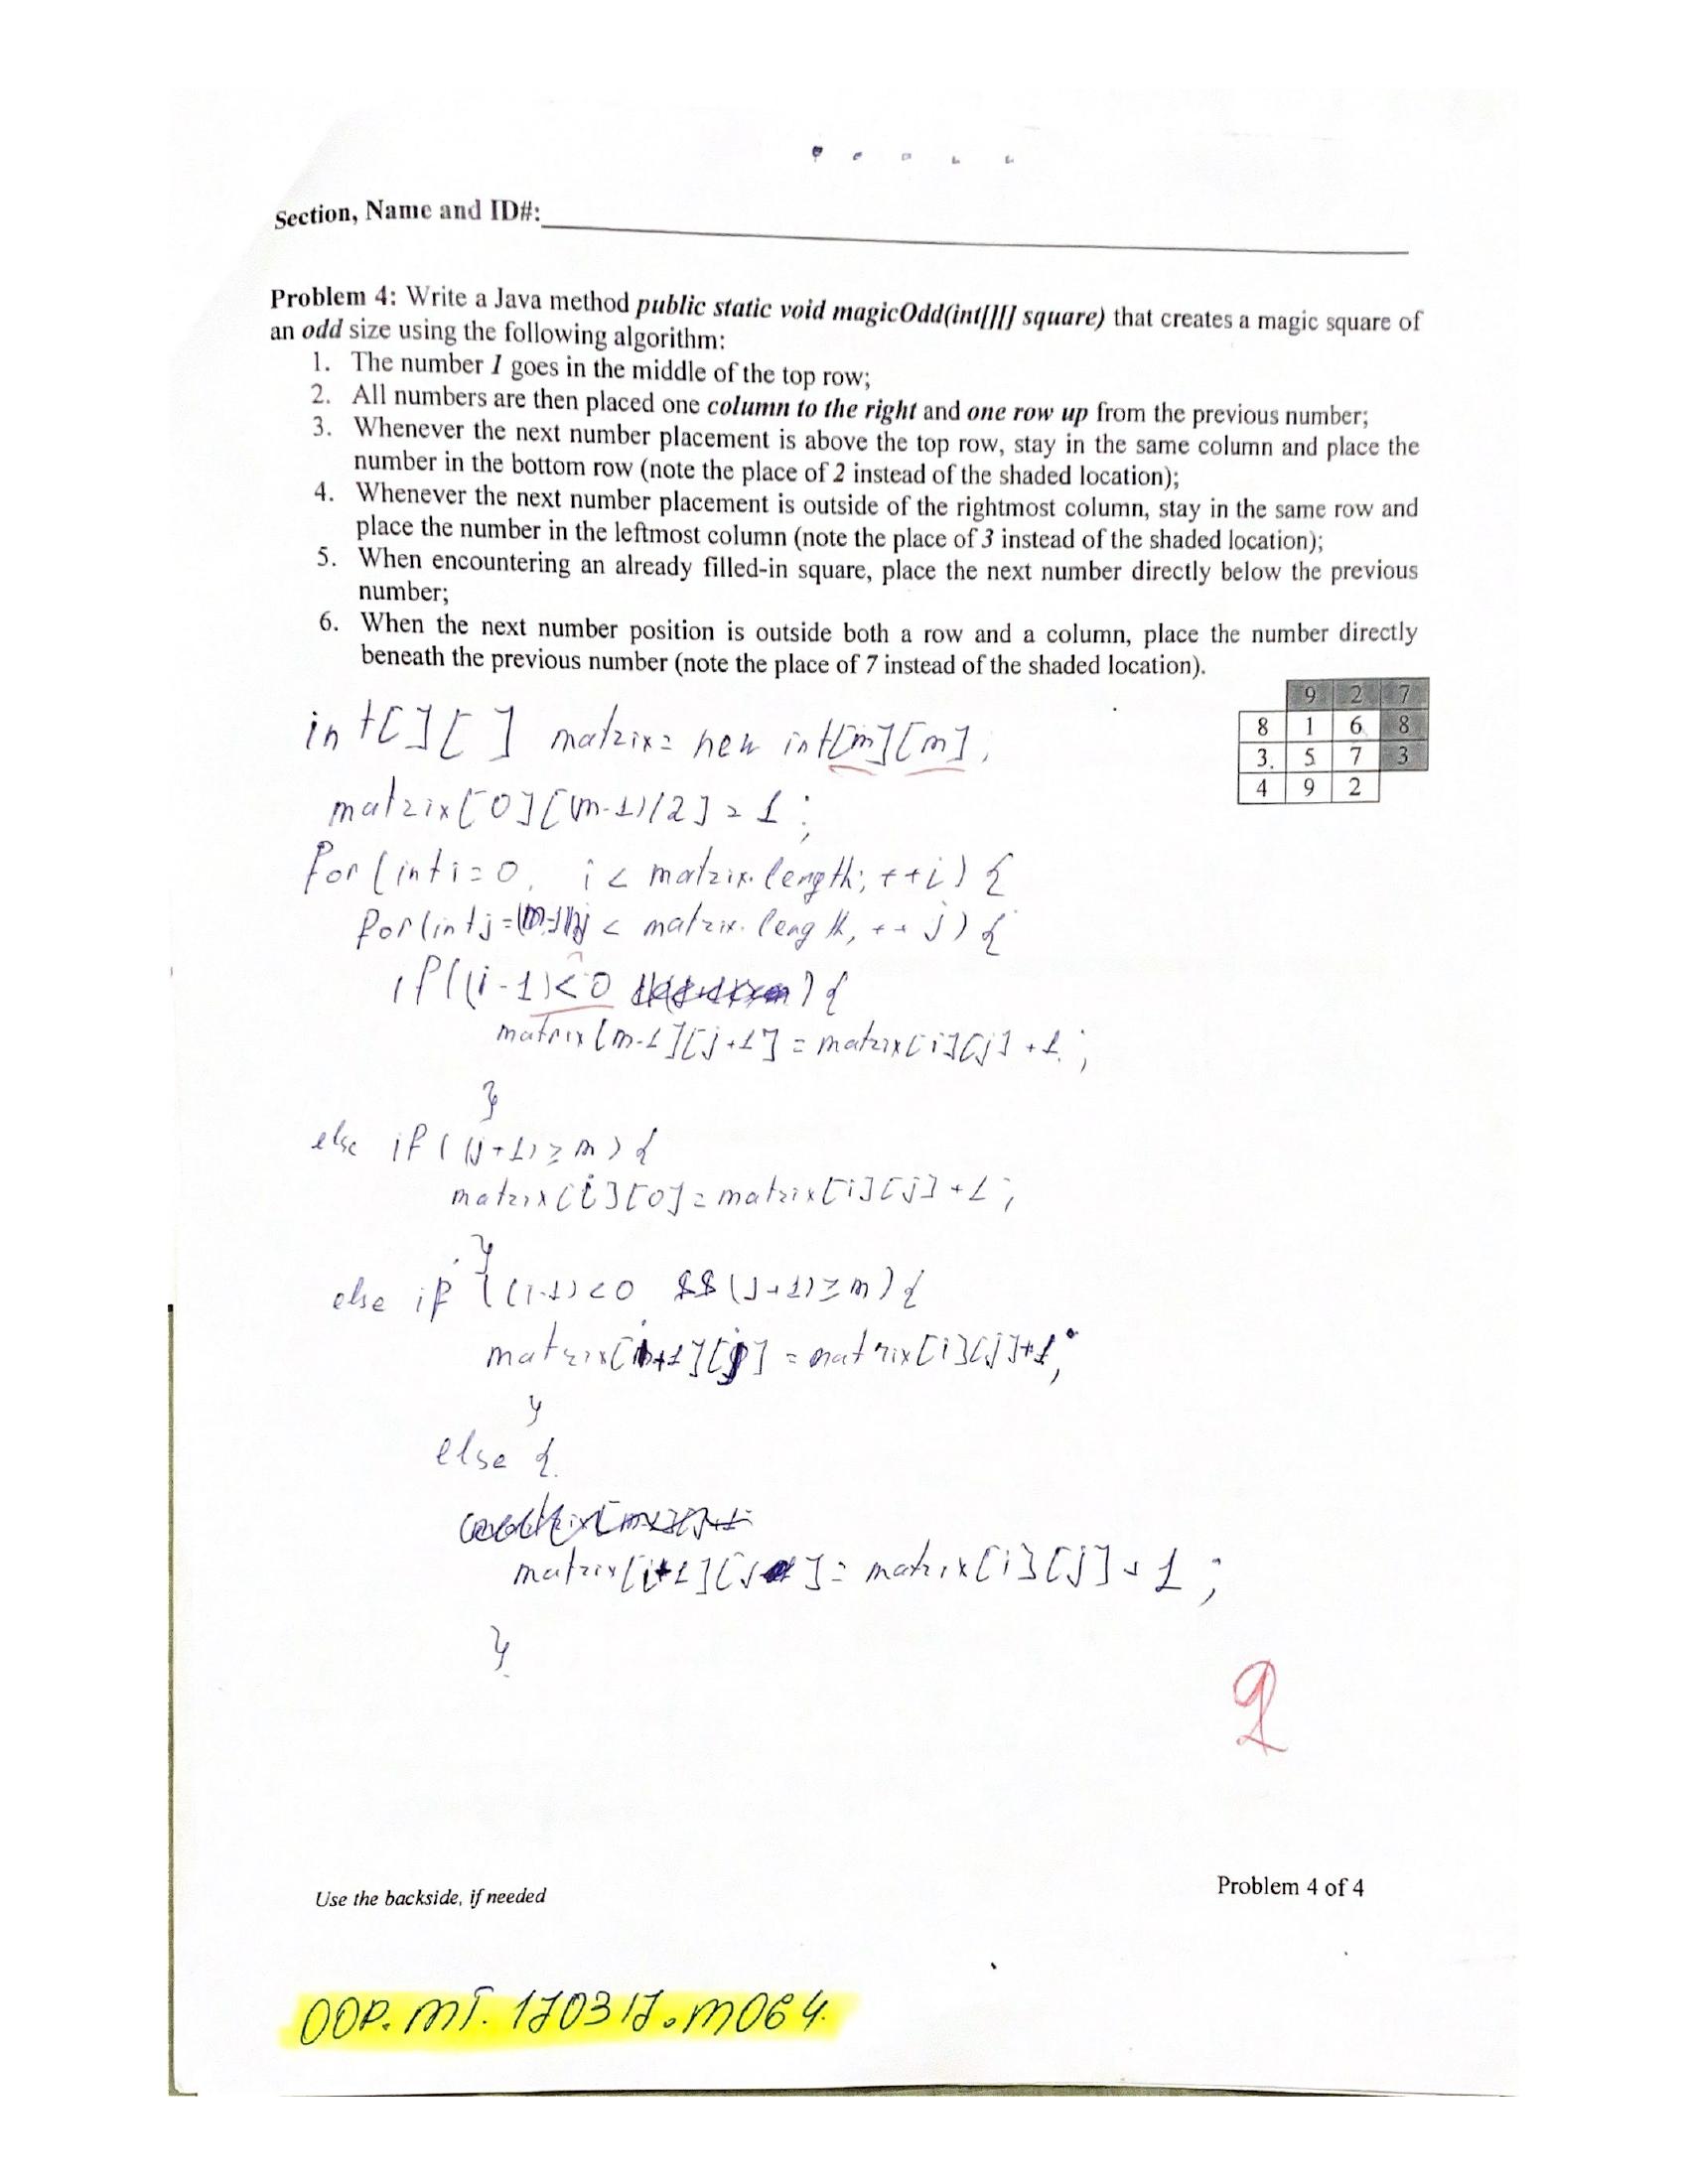 Section, Name and ID#:
Problem 4: Write a Java method public static void magicOdd(int[][] square) that creates a magic square of
an odd size using the following algorithm:
1. The number 1 goes in the middle of the top row;
2. All numbers are then placed one column to the right and one row up from the previous number;
3. Whenever the next number placement is above the top row, stay in the same column and place the
number in the bottom row (note the place of 2 instead of the shaded location);
4. Whenever the next number placement is outside of the rightmost column, stay in the same row and
place the number in the leftmost column (note the place of 3 instead of the shaded location);
5. When encountering an already filled-in square, place the next number directly below the previous
number;
6. When the next number position is outside both a row and a column, place the number directly
beneath the previous number (note the place of 7 instead of the shaded location).
9 2 7
8 1 6 8
3. 5 7 3
4 9 2
int[][] matrix = new int[m][m];
matrix[0][(m-1)/2] = 1;
for (int i = 0, i < matrix.length; ++i) {
for (int j = j < matrix.length, ++j) {
if((i-1)<0 ) {
matrix[m-1][j+1] = matrix[i][j] +1;
}
else if ((j+1) ≥ m) {
matrix[i][0] = matrix[i][j] +1;
}
else if ((i-1)<0 && (j+1)≥m) {
matrix[i+1][j] = matrix[i][j]+1;
}
else {
matrix[i+1][j] = matrix[i][j] + 1;
}
2
Use the backside, if needed
Problem 4 of 4
OOP. MT. 170317. M064